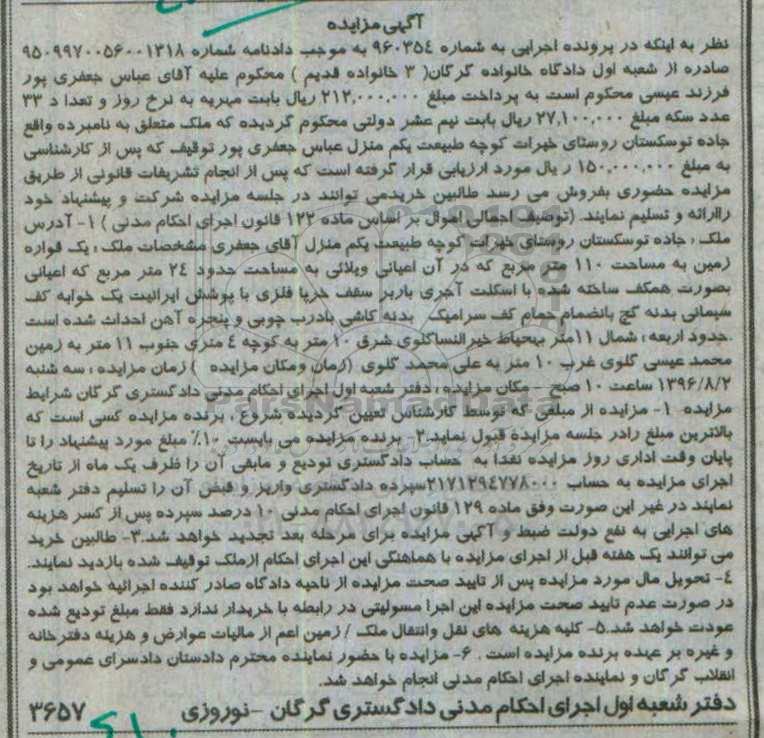 آگهی مزایده
نظر به اینکه در پرونده اجرایی به شماره ۹۶۰۳۵۴ به موجب دادنامه شماره ۹۵۰۹۹۷۰۰۵۶۰۰۱۳۱۸
صادره از شعبه اول دادگاه خانواده گرگان( ۳ خانواده قدیم ) محکوم علیه آقای عباس جعفری پور
فرزند عیسی محکوم است به پرداخت مبلغ ۲۱۲,۰۰۰,۰۰۰ ریال بابت مهریه به نرخ روز و تعدا د ۳۳
عدد سکه مبلغ ۲۷,۱۰۰,۰۰۰ ریال بابت نیم عشر دولتی محکوم گردیده که ملک متعلق به نامبرده واقع
جاده توسکستان روستای خیرات کوچه طبیعت یکم منزل عباس جعفری پور توقیف که پس از کارشناسی
به مبلغ ۱۵۰,۰۰۰,۰۰۰ ر یال مورد ارزیابی قرار گرفته است که پس از انجام تشریفات قانونی از طریق
مزایده حضوری بفروش می رسد طالبین خریدمی توانند در جلسه مزایده شرکت و پیشنهاد خود
راارائه و تسلیم نمایند. (توصیف اجمالی اموال بر اساس ماده ۱۲۲ قانون اجرای احکام مدنی ) ۱- آدرس
ملک : جاده توسکستان روستای خیرات کوچه طبیعت یکم منزل آقای جعفری مشخصات ملک : یک قواره
زمین به مساحت ۱۱۰ متر مربع که در آن اعیانی ویلائی به مساحت حدود ۲۴ متر مربع که اعیانی
بصورت همکف ساخته شده با اسکلت آجری باربر سقف خرپا فلزی با پوشش ایرانیت یک خوابه کف
سیمانی بدنه گچ بانضمام حمام کف سرامیک بدنه کاشی بادرب چوبی و پنجره آهن احداث شده است
.حدود اربعه : شمال ۱۱متر بهحیاط خیرالنساگلوی شرق ۱۰ متر به کوچه ۴ متری جنوب ۱۱ متر به زمین
محمد عیسی گلوی غرب ۱۰ متر به علی محمد گلوی (زمان ومکان مزایده ) زمان مزایده : سه شنبه
۱۳۹۶/۸/۲ ساعت ۱۰ صبح - مکان مزایده : دفتر شعبه اول اجرای احکام مدنی دادگستری گرگان شرایط
مزایده ۱- مزایده از مبلغی که توسط کارشناس تعیین گردیده شروع ، برنده مزایده کسی است که
بالاترین مبلغ رادر جلسه مزایده قبول نماید.۲- برنده مزایده می بایست ۱۰٪ مبلغ مورد پیشنهاد را تا
پایان وقت اداری روز مزایده نقدا به حساب دادگستری تودیع و مابقی آن را ظرف یک ماه از تاریخ
اجرای مزایده به حساب ۲۱۷۱۲۹۴۷۷۸۰۰۰سپرده دادگستری واریز و قبض آن را تسلیم دفتر شعبه
نمایند در غیر این صورت وفق ماده ۱۲۹ قانون اجرای احکام مدنی ۱۰ درصد سپرده پس از کسر هزینه
های اجرایی به نفع دولت ضبط و آگهی مزایده برای مرحله بعد تجدید خواهد شد.۳- طالبین خرید
می توانند یک هفته قبل از اجرای مزایده با هماهنگی این اجرای احکام ازملک توقیف شده بازدید نمایند.
۴- تحویل مال مورد مزایده پس از تایید صحت مزایده از ناحیه دادگاه صادر کننده اجرائیه خواهد بود
در صورت عدم تایید صحت مزایده این اجرا مسولیتی در رابطه با خریدار ندارد فقط مبلغ تودیع شده
عودت خواهد شد.۵- کلیه هزینه های نقل وانتقال ملک / زمین اعم از مالیات عوارض و هزینه دفترخانه
و غیره بر عهده برنده مزایده است . ۶- مزایده با حضور نماینده محترم دادستان دادسرای عمومی و
انقلاب گرگان و نماینده اجرای احکام مدنی انجام خواهد شد.
دفتر شعبه اول اجرای احکام مدنی دادگستری گرگان -نوروزی ۳۶۵۷